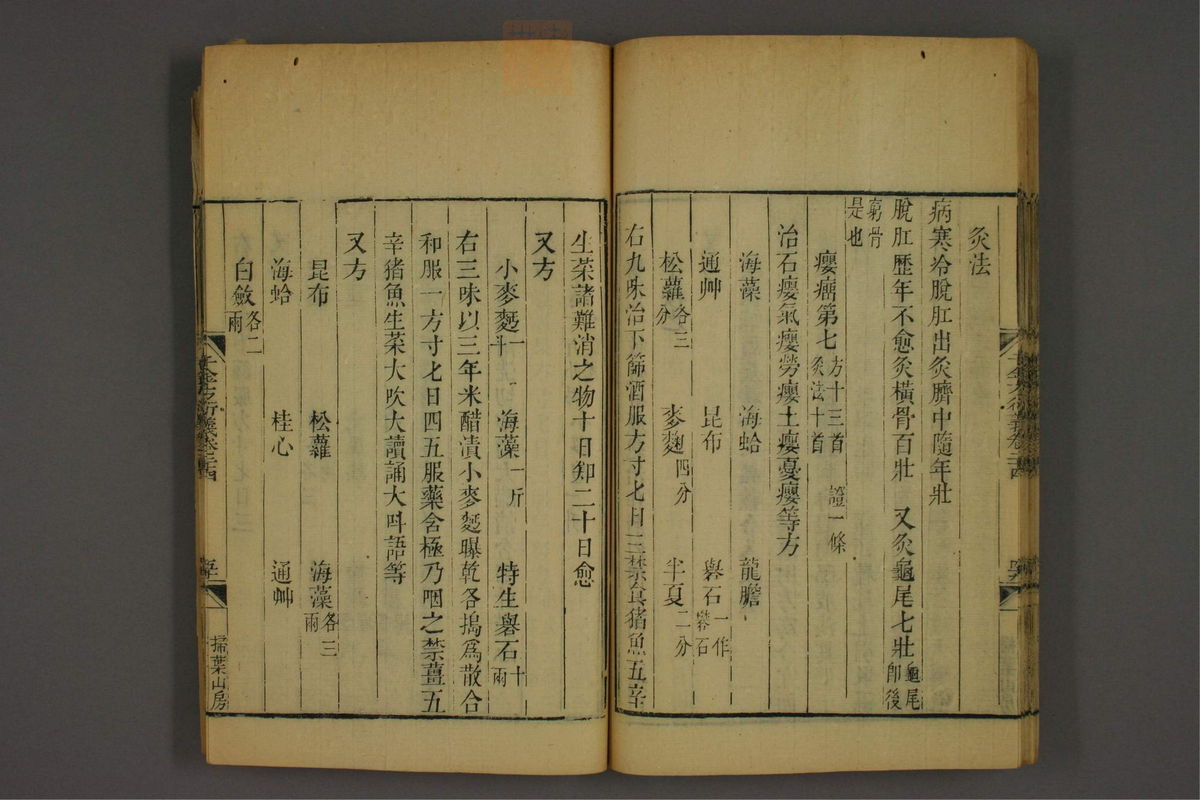 灸法
病寒冷脫肛出灸臍中隨年壯
脫肛歷年不愈灸橫骨百壯 又灸龜尾七壯龜尾即後
窮骨是也
癭瘤第七方十三首灸法十首 證一條
治石癭氣癭勞癭土癭憂癭等方
海藻 海蛤 龍膽
通艸 昆布 礜石一作礬石
松蘿各三分 麥麴四分 半夏二分
右九味治下篩酒服方寸匕日三禁食猪魚五辛
生菜諸難消之物十日知二十日愈
又方
小麥麫一斗 海藻一斤 特生礜石十兩
右三味以三年米醋漬小麥麫曝乾各搗爲散合
和服一方寸匕日四五服藥含極乃咽之禁薑五
辛猪魚生菜大吹大讀誦大呌語等
又方
昆布 松蘿 海藻各三兩
海蛤 桂心 通艸
白蘞各二兩
千金方衍義卷之二十四
掃葉山房